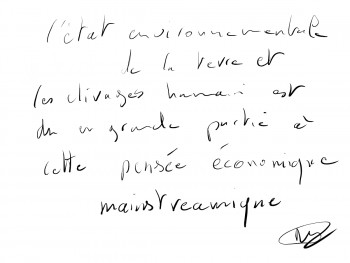 l'état environnementale
de la terre et
les clivages humain est
du en grande partie à
cette pensée économique
mainstreamique